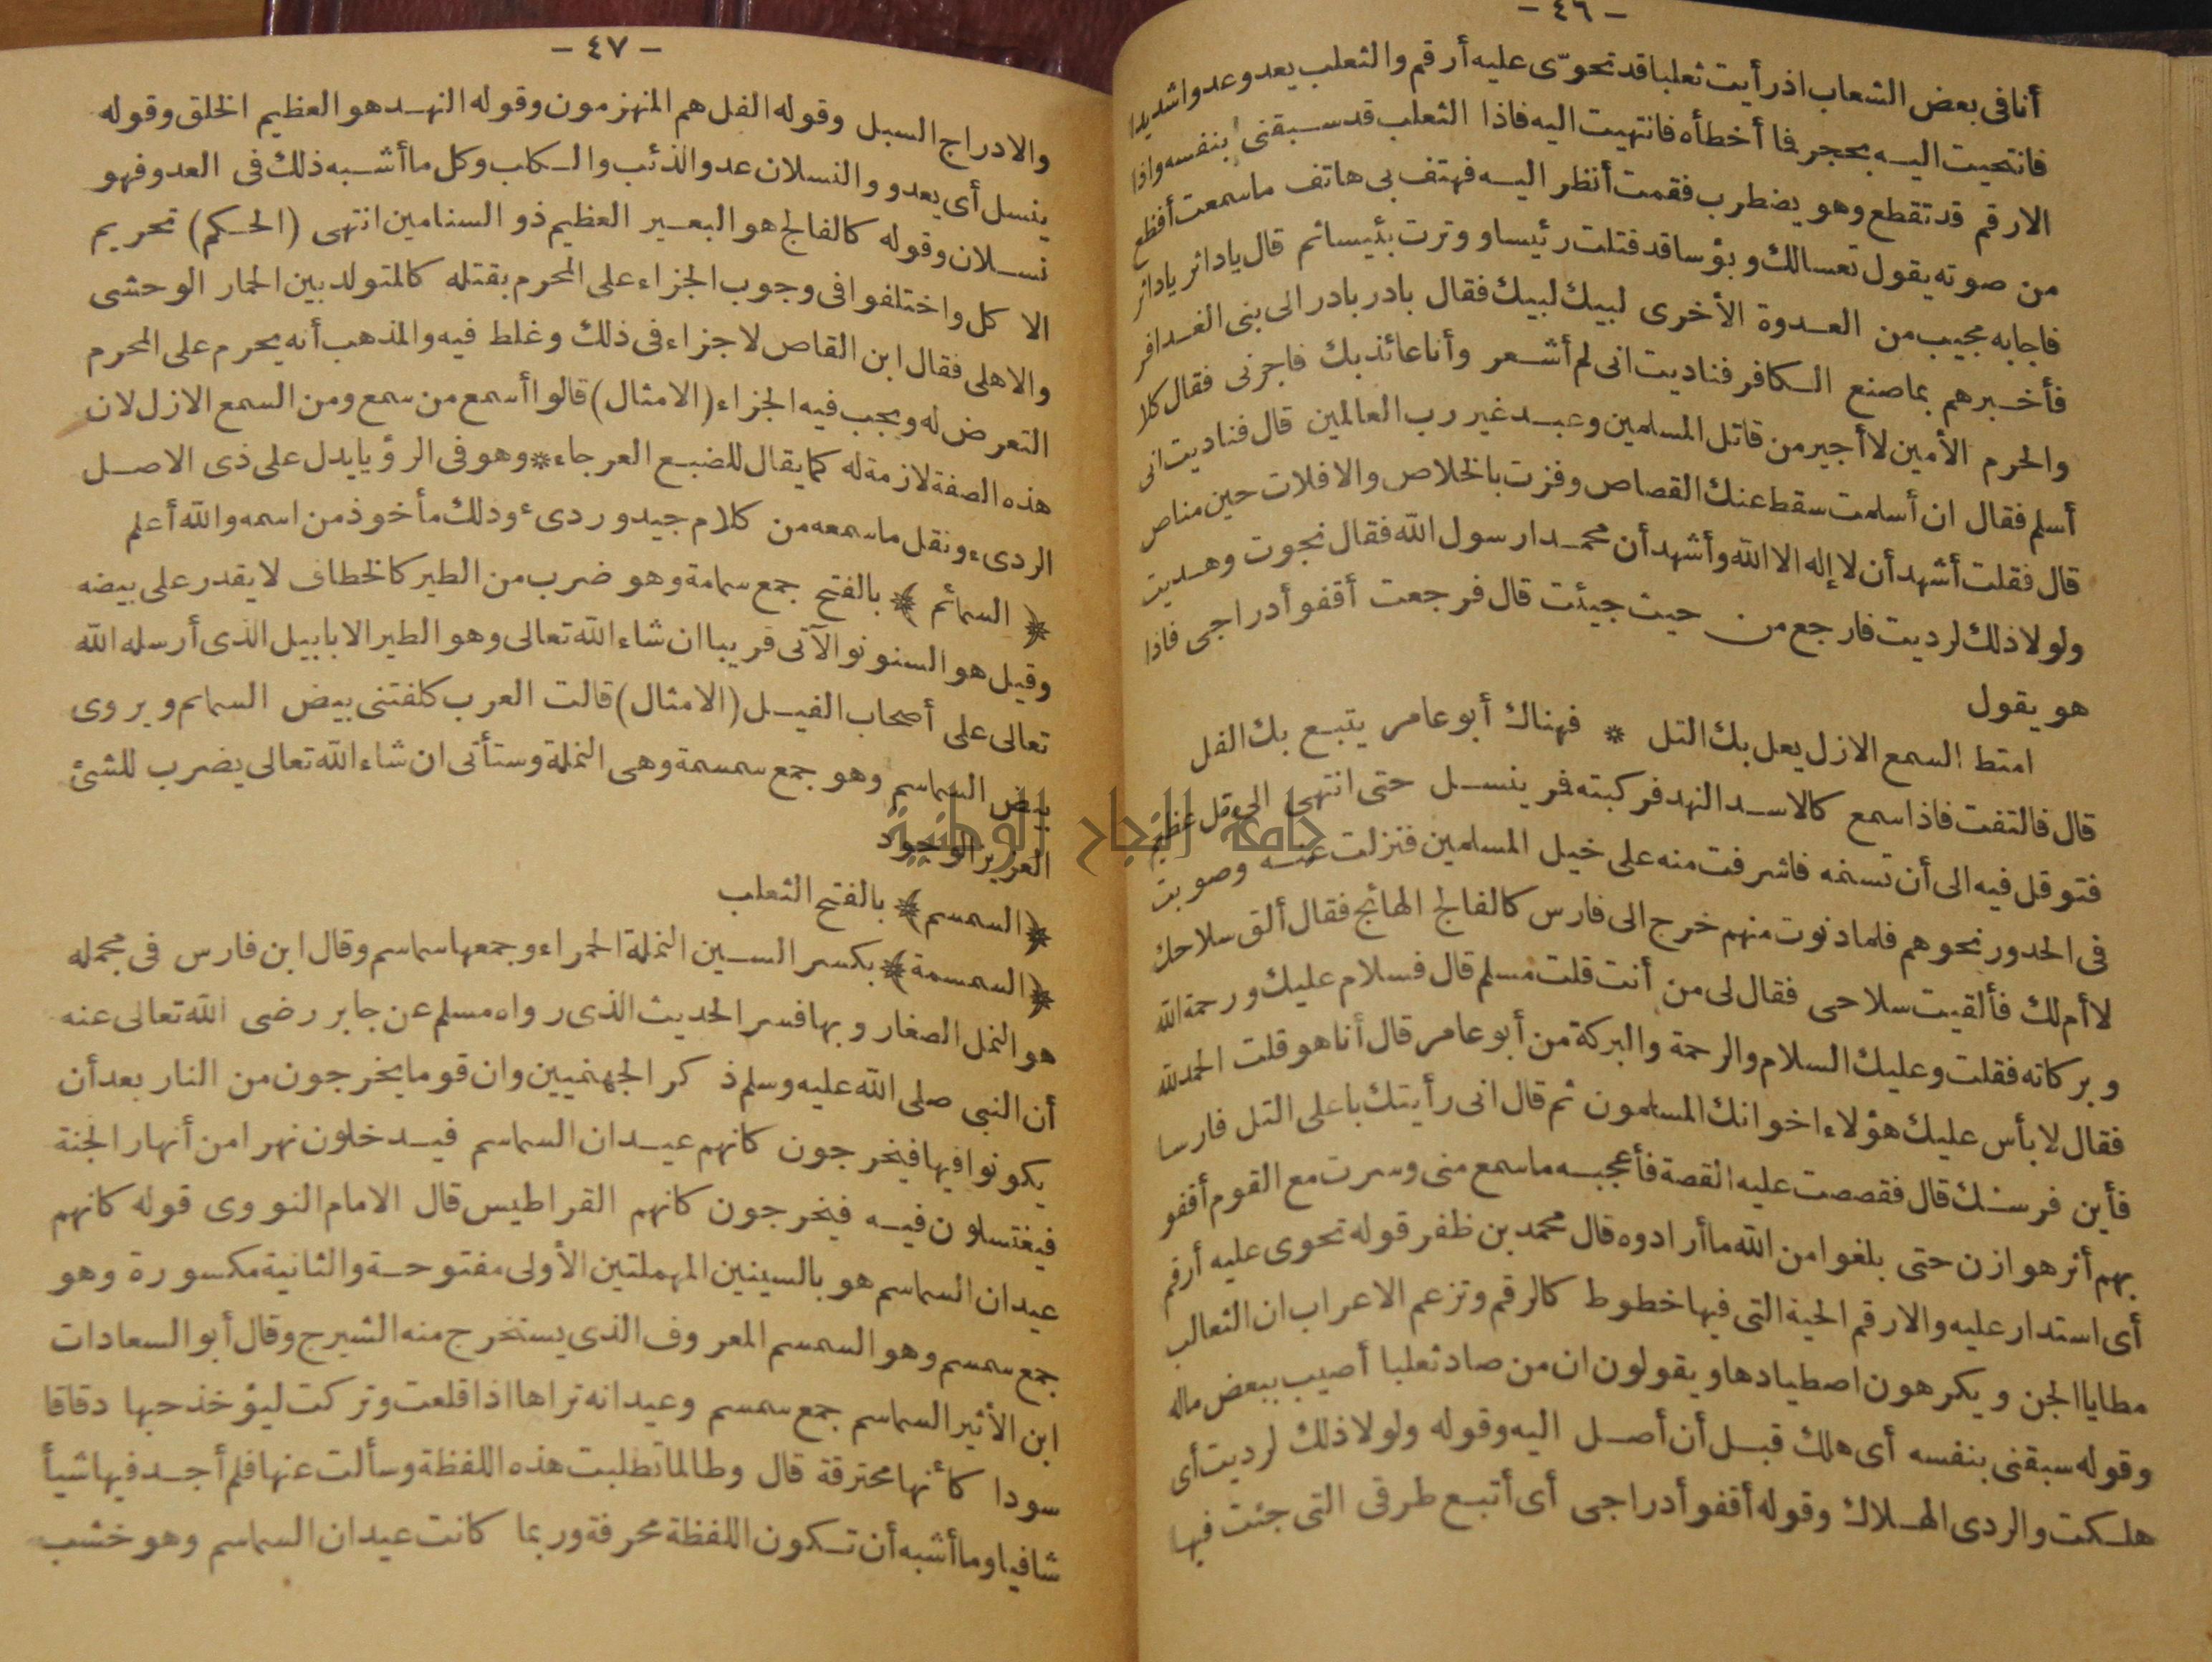 - ٤٦ -
أنا فى بعض الشعاب اذ رأيت ثعلبا قد تحوّى عليه أرقم والثعلب يعدو عدوا شديدا
فانتحيت اليه بحجر فما أخطأه فانتهيت اليه فاذا الثعلب قد سبقنى بنفسه واذا
الارقم قد تقطع وهو يضطرب فقمت أنظر اليه فهتف بى هاتف ما سمعت أفظع
من صوته يقول تعسا لك وبؤسا قد قتلت رئيسا ووترت بئيسا ثم قال يا داثر يا داثر
فاجابه مجيب من العدوة الأخرى لبيك لبيك فقال بادر بادر الى بنى الغدافر
فأخبرهم بما صنع الكافر فناديت انى لم أشعر وأنا عائذ بك فاجرنى فقال كلا
والحرم الأمين لا أجير من قاتل المسلمين وعبد غير رب العالمين قال فناديت انى
أسلم فقال ان أسلمت سقط عنك القصاص وفزت بالخلاص والا فلات حين مناص
قال فقلت أشهد أن لا إله الا الله وأشهد أن محمدا رسول الله فقال نجوت وهديت
ولولا ذلك لرديت فارجع من حيث جيئت قال فرجعت أقفو أدراجى فاذا
هو يقول
امتط السمع الازل يعل بك التل * فهناك أبو عامر يتبع بك الفل
قال فالتفت فاذا سمع كالاسد النهد فركبته فمر ينسل حتى انتهى الى تل عظيم
فتوقل فيه الى أن تسنمه فاشرفت منه على خيل المسلمين فنزلت عنه وصوبت
فى الحدور نحوهم فلما دنوت منهم خرج الى فارس كالفالج الهائج فقال ألق سلاحك
لا أم لك فألقيت سلاحى فقال لى من أنت قلت مسلم قال فسلام عليك ورحمة الله
وبركاته فقلت وعليك السلام والرحمة والبركة من أبو عامر قال أنا هو قلت الحمد لله
فقال لا بأس عليك هؤلاء اخوانك المسلمون ثم قال انى رأيتك باعلى التل فارسا
فأين فرسك قال فقصصت عليه القصة فأعجبه ما سمع منى وسرت مع القوم أقفو
بهم أثر هوازن حتى بلغوا من الله ما أرادوه قال محمد بن ظفر قوله تحوى عليه أرقم
أى استدار عليه والارقم الحية التى فيها خطوط كالرقم وتزعم الاعراب ان الثعالب
مطايا الجن ويكرهون اصطيادها ويقولون ان من صاد ثعلبا أصيب ببعض ماله
وقوله سبقنى بنفسه أى هلك قبل أن أصل اليه وقوله ولولا ذلك لرديت أى
هلكت والردى الهلاك وقوله أقفو أدراجى أى أتبع طرقى التى جئت فيها
- ٤٧ -
والادراج السبل وقوله الفل هم المنهزمون وقوله النهد هو العظيم الخلق وقوله
ينسل أى يعدو والنسلان عدو الذئب والكلب وكل ما أشبه ذلك فى العدو فهو
نسلان وقوله كالفالج هو البعير العظيم ذو السنامين انتهى (الحكم) تحريم
الاكل واختلفوا فى وجوب الجزاء على المحرم بقتله كالمتولد بين الحمار الوحشى
والاهلى فقال ابن القاص لا جزاء فى ذلك وغلط فيه والمذهب أنه يحرم على المحرم
التعرض له ويجب فيه الجزاء (الامثال) قالوا أسمع من سمع ومن السمع الازل لان
هذه الصفة لازمة له كما يقال للضبع العرجاء * وهو فى الرؤيا يدل على ذى الاصل
الردىء ونقل ما سمعه من كلام جيد وردىء وذلك مأخوذ من اسمه والله أعلم
﴿السمائم﴾ بالفتح جمع سمامة وهو ضرب من الطير كالخطاف لا يقدر على بيضه
وقيل هو السنونو الآتى قريبا ان شاء الله تعالى وهو الطير الابابيل الذى أرسله الله
تعالى على أصحاب الفيل (الامثال) قالت العرب كلفتنى بيض السمائم ويروى
بيض السماسم وهو جمع سمسمة وهى النملة وستأتى ان شاء الله تعالى يضرب للشئ
العزيز الوجود
﴿السمسم﴾ بالفتح الثعلب
﴿السمسمة﴾ بكسر السين النملة الحمراء وجمعها سماسم وقال ابن فارس فى مجمله
هو النمل الصغار وبها فسر الحديث الذى رواه مسلم عن جابر رضى الله تعالى عنه
أن النبى صلى الله عليه وسلم ذكر الجهنميين وان قوما يخرجون من النار بعد أن
يكونوا فيها فيخرجون كانهم عيدان السماسم فيدخلون نهرا من أنهار الجنة
فيغتسلون فيه فيخرجون كانهم القراطيس قال الامام النووى قوله كانهم
عيدان السماسم هو بالسينين المهملتين الأولى مفتوحة والثانية مكسورة وهو
جمع سمسم وهو السمسم المعروف الذى يستخرج منه الشيرج وقال أبو السعادات
ابن الأثير السماسم جمع سمسم وعيدانه تراها اذا قلعت وتركت ليؤخذ حبها دقاقا
سودا كأنها محترقة قال وطالما تطلبت هذه اللفظة وسألت عنها فلم أجد فيها شيأ
شافيا وما أشبه أن تكون اللفظة محرفة وربما كانت عيدان السماسم وهو خشب
جامعة النجاح الوطنية